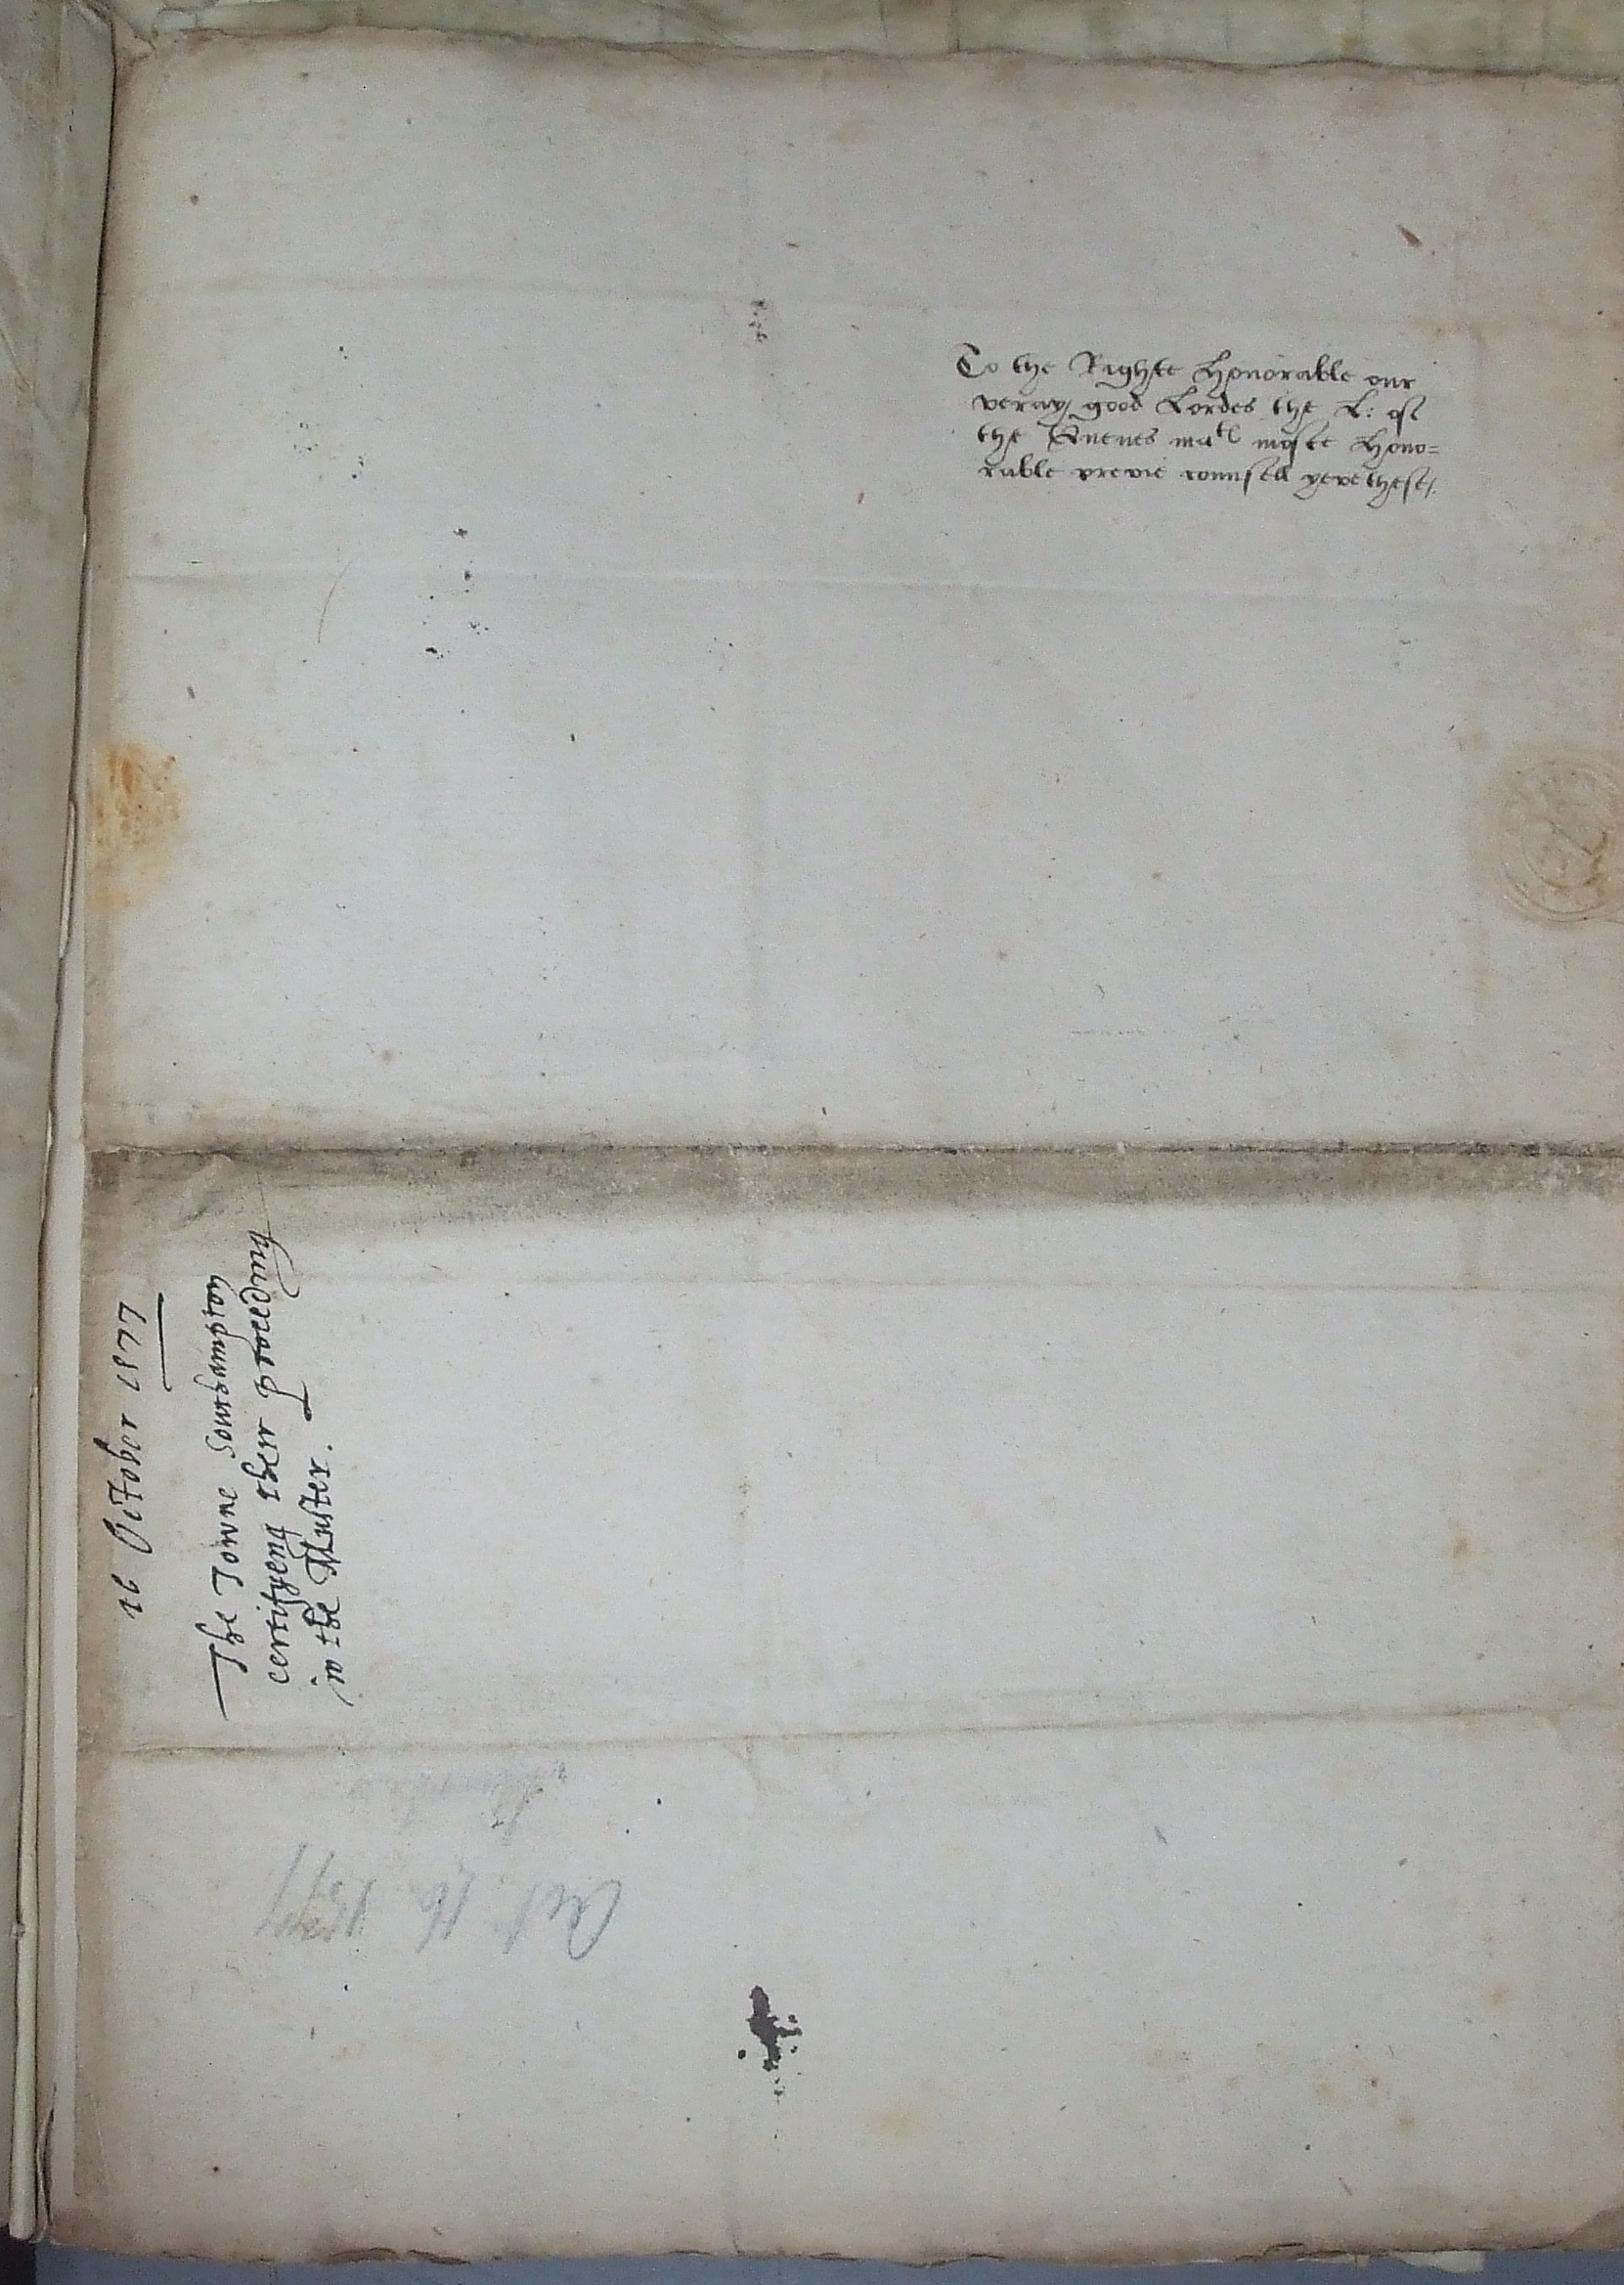 To the Righte Honorable our
veray good Lordes the L: of
the Quenes ma^tes moste Hono=
rable previe counsell yeve these/.
16 October 1577
The Towne Southampton
certifyeng their proceding
in the Muster.
Oct. 16 1577